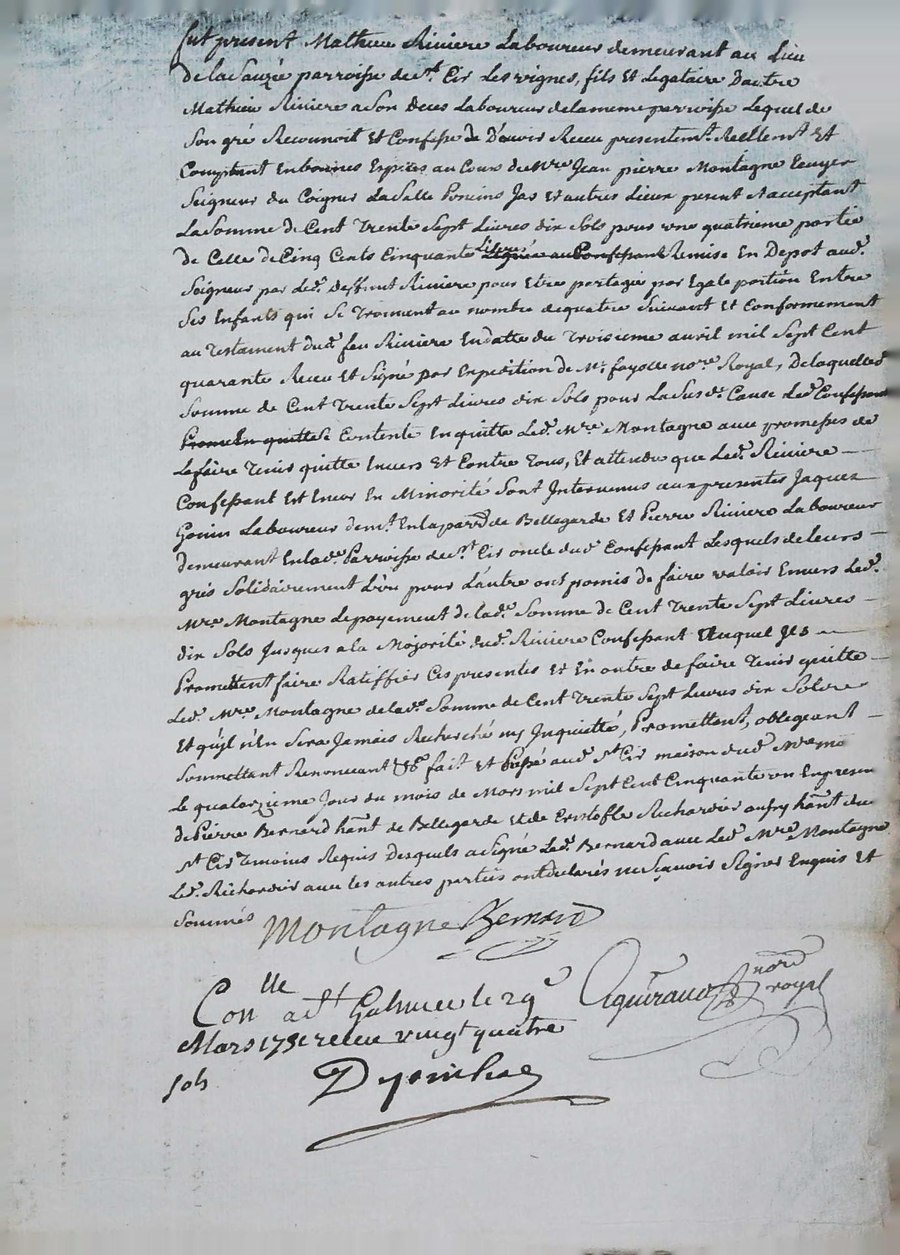 fut present Mathieu Riviere Laboureur demeurant au Lieu
de la parroisse de st. Cir Les vignes, fils Et Legataire D'autre
Mathieu Riviere a Son deces Laboureur de la meme parroisse Lequel de
Son gré Reconnoit Et Confesse D'avoir Receu presentemt. Reellemt. Et
Comptant En bonnes Espèces au Cours du Mre. Jean pierre Montagne Ecuyer
Seigneur du Coignet La Salle Poncins Jas Et autres Lieux present Et acceptant
La Somme de Cent Trente Sept Livres dix Sols pour une quatrieme partie
de Celle de Cinq Cents Cinquante Livres Remise En Depot aud.
Seigneur par Led. Deffunt Riviere pour Etre partagée par Egale portion Entre
Ses Enfants qui Se Trouvent au nombre de quatre Suivant Et Conformement
au Testament dud. feu Riviere En datte du Troisieme avril mil Sept Cent
quarante Receu Et Signé par Expedition de Me. fayolle nore. Royal, De laquelle
Somme de Cent Trente Sept Livres dix Sols pour La Susd. Cause Led. Confessant
Se Contente En quitte Led. Mre. Montagne avec promesses de
Le faire Tenir quitte Envers Et Contre Tous, Et attendu que Led. Riviere
Confessant Est Encor En Minorité Sont Intervenus aux presentes Jaques
Gonin Laboureur demt. En la de Bellegarde Et Pierre Riviere Laboureur
demeurant En lad. Parroisse de st. Cir oncle dud. Confessant Lesquels de leurs
grés Solidairement L'un pour L'autre ont promis de faire valoir Envers Led.
Mre. Montagne Le payement de lad. Somme de Cent Trente Sept Livres
dix Sols Jusques a la Majorité dud. Riviere Confessant Auquel Ils
Promettent faire Ratiffier Ces presentes Et En outre de faire Tenir quitte
Led. Mre. Montagne de lad. Somme de Cent Trente Sept Livres dix Sols
Et qu'yl n'En Sera Jamais Recherché ny Inquietté, Promettent, obligeant
Soumettant Renoncant fait Et Passé aud. St. Cir maison dud.
Le quatorzieme Jour du mois de Mars mil Sept Cent Cinquante un En presence
de Pierre Bernard hant. de Bellegarde Et de Cristofle Richardier hant. dud.
st. Cir Temoins Requis Desquels a Signé Led. Bernard avec Led. Mre. Montagne
Led. Richardier avec les autres parties ont declarés ne Sçavoir Signer Enquis Et
Sommés
Montagne Bernard
Con.lle a st Galmier le 29e
nore royal
Mars 1751 receu vingt quatre
sols